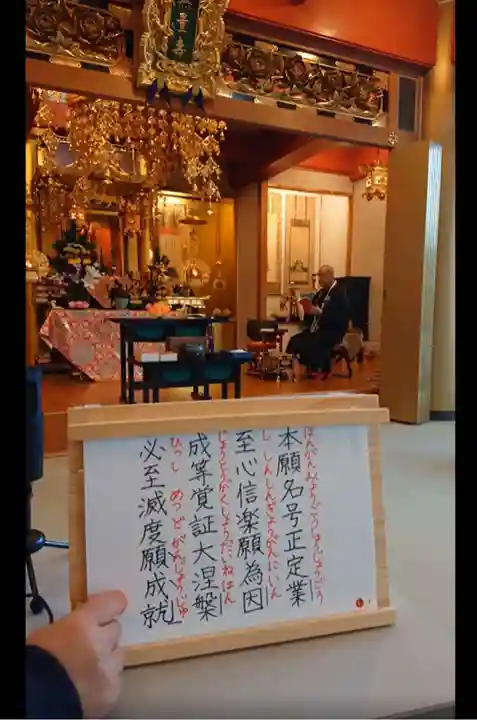 ほんがんみょうごうしょうじょうごう
本願名号正定業
ししんしんぎょうがんにいん
至心信楽願為因
じょうとうがくしょうだいねはん
成等覚証大涅槃
ひっしめつどがんじょうじゅ
必至滅度願成就